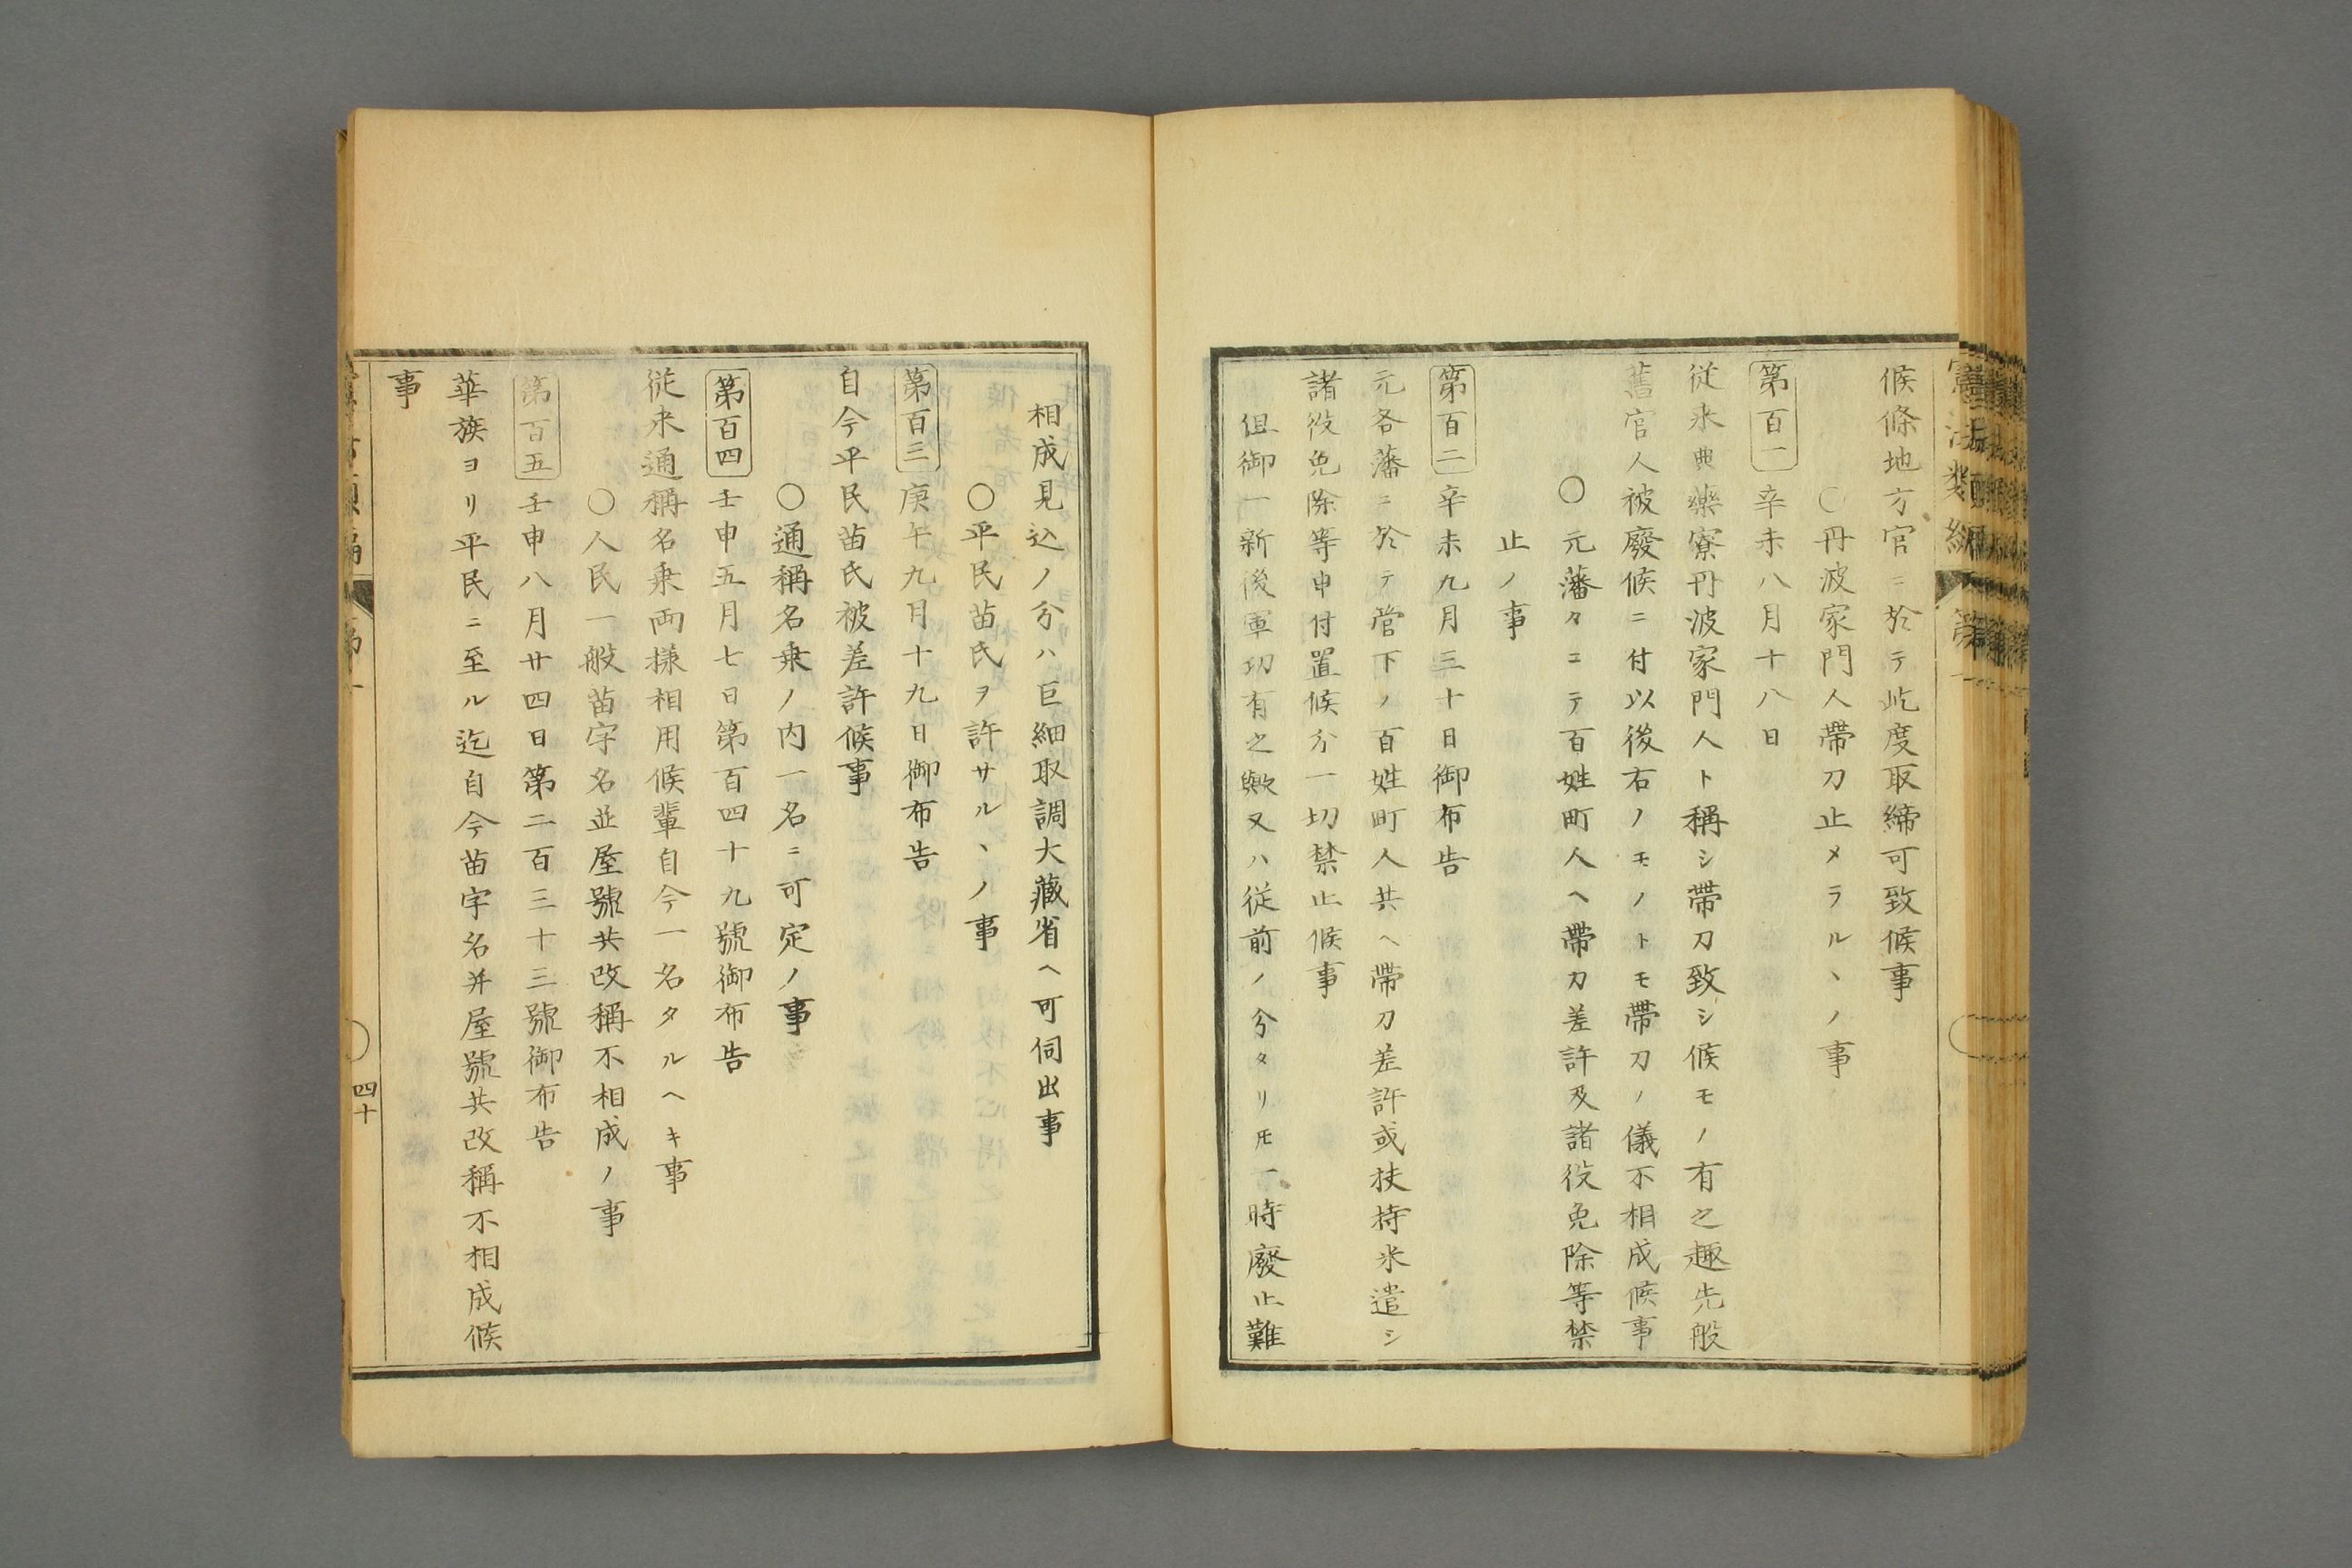 候條地方官ニ於テ屹度取締可致候事
○丹波家門人帶刀止メラルヽノ事
第百一 辛未八月十八日
従来典藥寮丹波家門人ト稱シ帶刀致シ候モノ有之趣先般
舊官人被廢候ニ付以後右ノモノトモ帶刀ノ儀不相成候事
○元藩々ニテ百姓町人ヘ帶刀差許及諸役免除等禁
止ノ事
第百二 辛未九月三十日御布告
元各藩ニ於テ管下ノ百姓町人共ヘ帶刀差許或扶持米遣シ
諸役免除等申付置候分一切禁止候事
但御一新後軍功有之歟又ハ従前ノ分タリ𪜈一時廢止難
相成見込ノ分ハ巨細取調大藏省ヘ可伺出事
○平民苗氏ヲ許サルヽノ事
第百三 庚午九月十九日御布告
自今平民苗氏被差許候事
○通稱名乗ノ内一名ニ可定ノ事
第百四 壬申五月七日第百四十九號御布告
従来通稱名乗両様相用候輩自今一名タルヘキ事
○人民一般苗字名並屋號共改稱不相成ノ事
第百五 壬申八月廿四日第二百三十三號御布告
華族ヨリ平民ニ至ル迄自今苗字名并屋號共改稱不相成候
事
四十